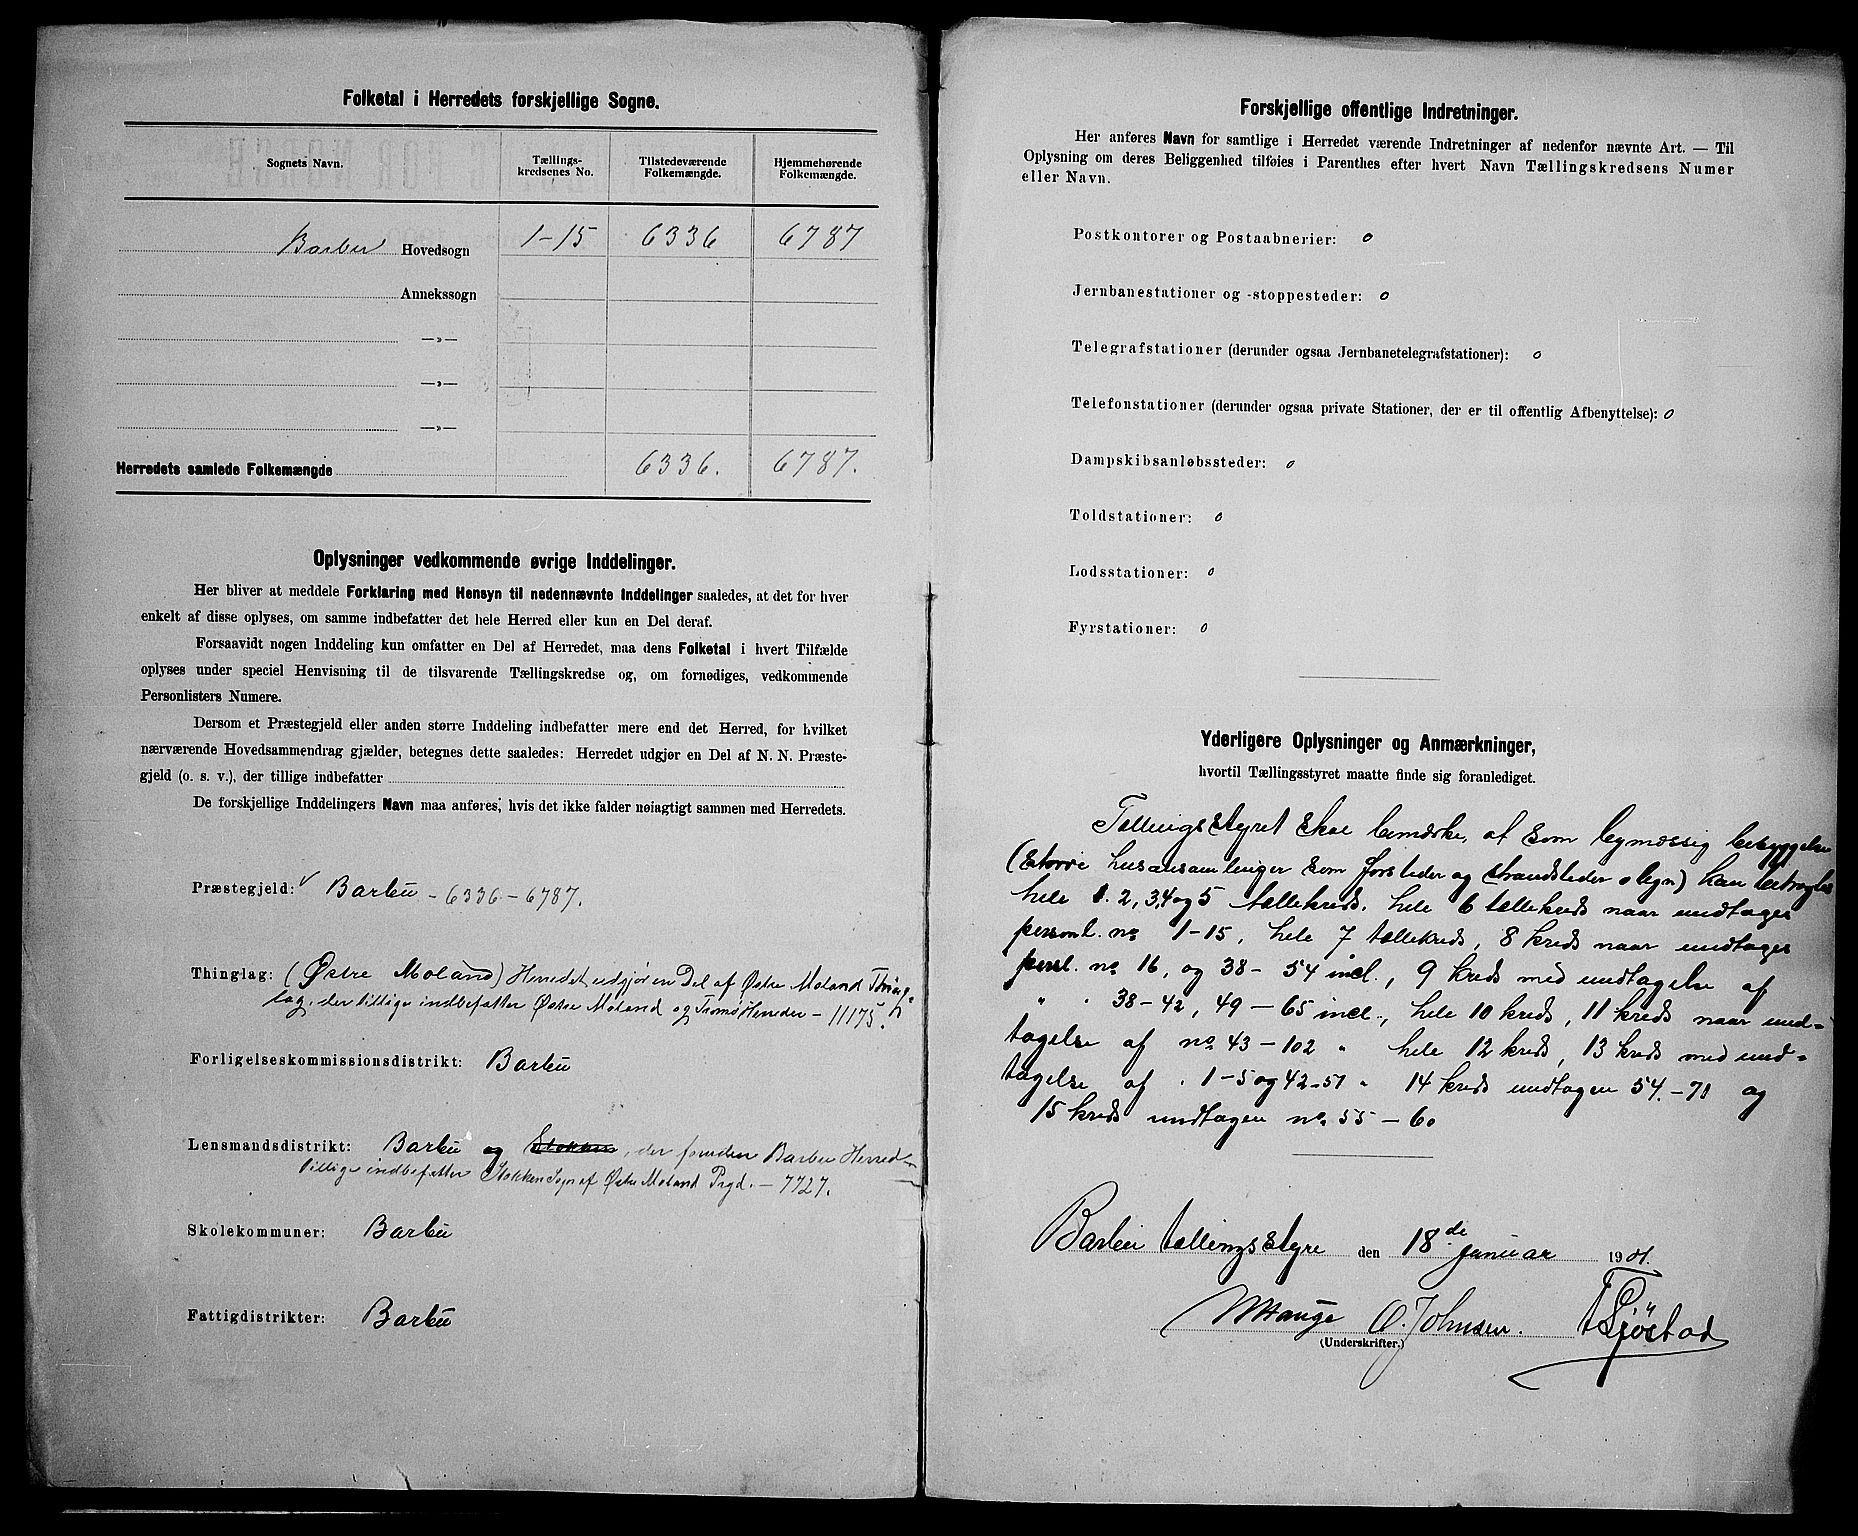 Folketal i Herredets forskjellige Sogne.
Sognets Navn. Tællings-kredsenes No. Tilstedeværende Folkemængde. Hjemmehørende Folkemængde.
Barbu Hovedsogn 1-15 6336 6787
Annekssogn
—»—
—»—
—»—
Herredets samlede Folkemængde 6336. 6787.
Oplysninger vedkommende øvrige Inddelinger.
Her bliver at meddele Forklaring med Hensyn til nedennævnte Inddelinger saaledes, at det for hver
enkelt af disse oplyses, om samme indbefatter det hele Herred eller kun en Del deraf.
Forsaavidt nogen Inddeling kun omfatter en Del af Herredet, maa dens Folketal i hvert Tilfælde
oplyses under speciel Henvisning til de tilsvarende Tællingskredse og, om fornødiges, vedkommende
Personlisters Numere.
Dersom et Præstegjeld eller anden større Inddeling indbefatter mere end det Herred, for hvilket
nærværende Hovedsammendrag gjælder, betegnes dette saaledes: Herredet udgjør en Del af N. N. Præste-
gjeld (o. s. v.), der tillige indbefatter
De forskjellige Inddelingers Navn maa anføres, hvis det ikke falder nøiagtigt sammen med Herredets.
Præstegjeld: Barbu - 6336 - 6787.
Thinglag: (Østre Moland) Herredet udgjør en Del af Østre Moland Thing-
lag, der tillige indbefatter Østre Moland og Tromø Herreder - 11175.
Forligelseskommissionsdistrikt: Barbu
Lensmandsdistrikt: Barbu og Stokken, der foruden Barbu Herred
tillige indbefatter Stokken Sogn af Østre Moland Prgd. - 7727.
Skolekommuner: Barbu
Fattigdistrikter: Barbu
Forskjellige offentlige Indretninger.
Her anføres Navn for samtlige i Herredet værende Indretninger af nedenfor nævnte Art. — Til
Oplysning om deres Beliggenhed tilføies i Parenthes efter hvert Navn Tællingskredsens Numer
eller Navn.
Postkontorer og Postaabnerier: 0
Jernbanestationer og -stoppesteder: 0
Telegrafstationer (derunder ogsaa Jernbanetelegrafstationer): 0
Telefonstationer (derunder ogsaa private Stationer, der er til offentlig Afbenyttelse): 0
Dampskibsanløbssteder: 0
Toldstationer: 0
Lodsstationer: 0
Fyrstationer: 0
Yderligere Oplysninger og Anmærkninger,
hvortil Tællingsstyret maatte finde sig foranlediget.
Tællingsstyret skal bemærke, at som bymæssig bebyggelse
(større husansamlinger som forsteder og strandsteder o lign) kan betragtes
hele 1. 2, 3, 4 og 5 tællekreds. hele 6 tællekreds naar undtages
personl. no 1-15, hele 7 tællekreds, 8 kreds naar undtages
persl. no 16, og 38 - 54 incl., 9 kreds med undtagelse af
" " 38-42, 49 - 65 incl., hele 10 kreds, 11 kreds naar und-
tagelse af no 43 - 102 " hele 12 kreds, 13 kreds med und-
tagelse af " 1-5 og 42-51 " 14 kreds undtagen 54.-71 og
15 kreds undtagen no. 55 - 60
Barbu tællingsstyre den 18de januar 1901.
Hauge O. Johnsen. Sjöstad
(Underskrifter.)